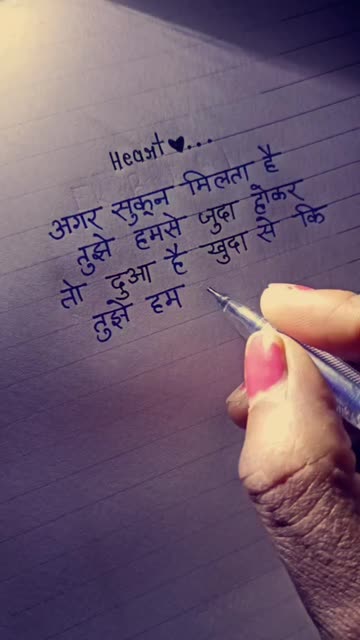 Heart ♥...
अगर सुकून मिलता है
तुझे हमसे जुदा होकर
तो दुआ है खुदा से कि
तुझे हम